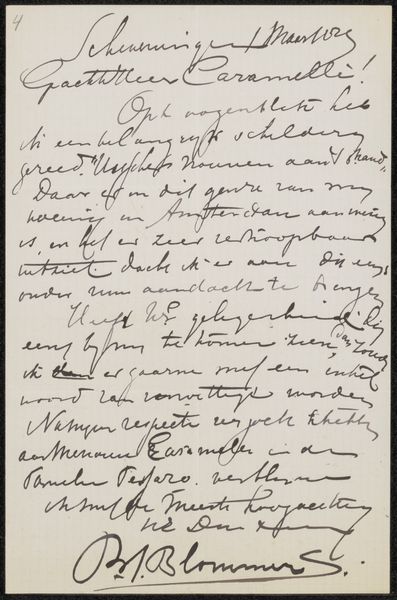 4
Scheveningen 1 Maart
Geachte Heer Caramelli!
Op 't oogenblik heb
ik een belangrijk schilderij
gereed. "Visschers vrouwen aan 't strand"
Daar er in dit genre van mij
in Amsterdam aanwezig
is, en het er zeer verkoopbaar
uitziet. dacht ik er aan dit eens
onder uw aandacht te brengen
Heeft U gelegenheid bij
eens bij mij te komen zien, dan zou
ik er gaarne met een enkel
woord van verwittigd worden
Na mijn respect verzocht te hebben
aan Mevrouw Caramelli en de
Familie Tessaro. verblijve
ik met de meeste hoogachting
UE Dw
B.J. Blommers.